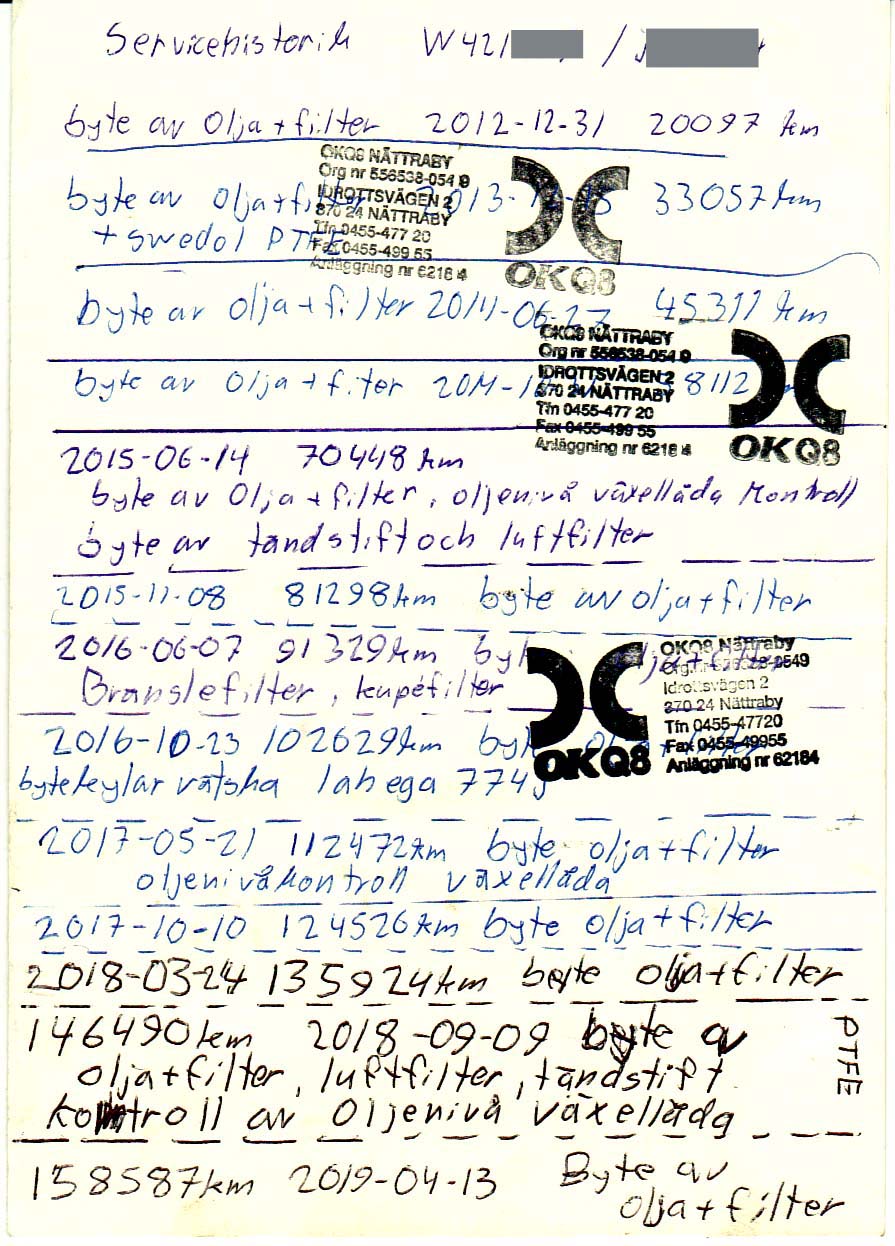 Servicehistorik W421 /
byte av olja + filter 2012-12-31 20097 km
OKQ8 NÄTTRABY
Org nr 556538-054 9
IDROTTSVÄGEN 2
370 24 NÄTTRABY
Tfn 0455-477 20
Fax 0455-499 55
Anläggning nr 6218 4
OKQ8
byte av olja + filter 2013-12-15 33057 km
+ swedol PTFE
byte av olja + filter 2014-06-27 45311 km
OKQ8 NÄTTRABY
Org nr 556538-054 9
IDROTTSVÄGEN 2
370 24 NÄTTRABY
Tfn 0455-477 20
Fax 0455-499 55
Anläggning nr 6218 4
OKQ8
byte av olja + filter 2014- 8112
2015-06-14 70448 km
byte av olja + filter, oljenivå växellåda kontroll
byte av tändstift och luftfilter
2015-11-08 81298 km byte av olja + filter
2016-06-07 91329 km byte olja + filter
Bränslefilter, kupéfilter
OKQ8
OKQ8 Nättraby
Org.nr 556538-0549
Idrottsvägen 2
370 24 Nättraby
Tfn 0455-47720
Fax 0455-49955
Anläggning nr 62184
2016-10-23 102629 km byte olja + filter
byte kylar vätska lahega 774
2017-05-21 112472 km byte olja + filter
oljenivåkontroll växellåda
2017-10-10 124526 km byte olja + filter
2018-03-24 135924 km byte olja + filter
146490 km 2018-09-09 byte av
PTFE
olja + filter, luftfilter, tändstift
kontroll av oljenivå växellåda
158587 km 2019-04-13 Byte av
olja + filter